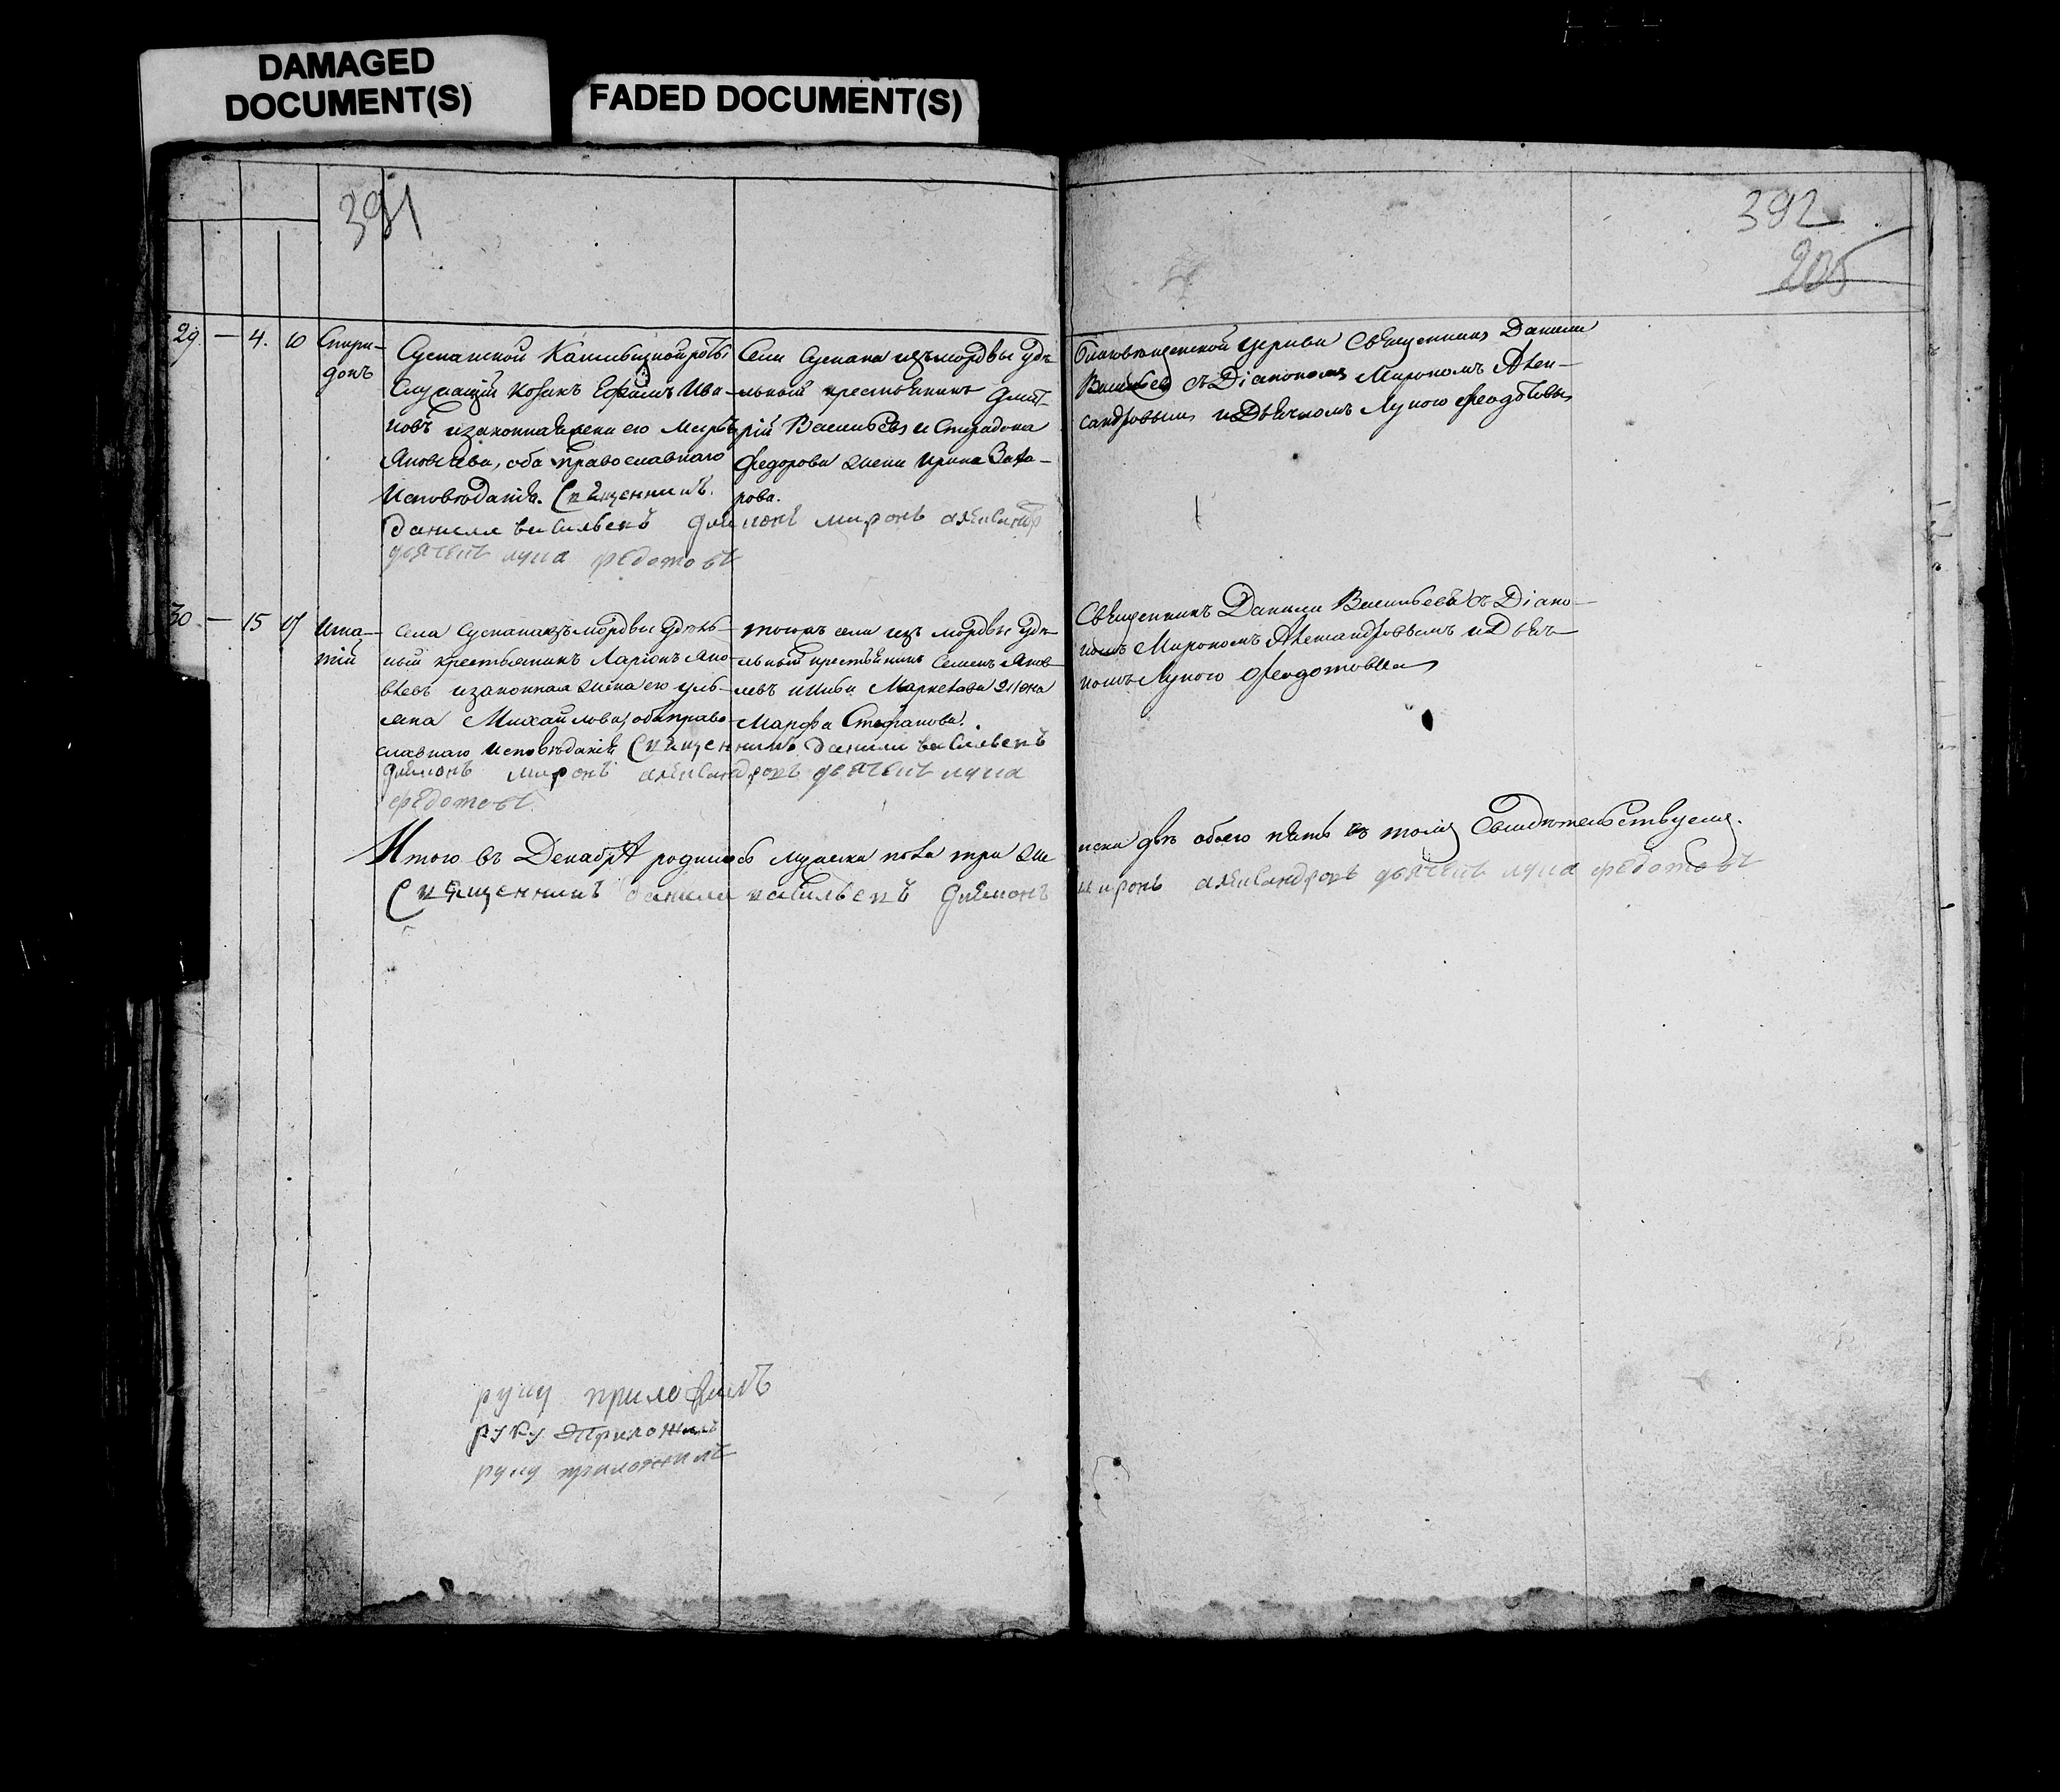 DAMAGED
DOCUMENT(S)
FADED DOCUMENT(S)
391
392
205
29. — 4. 10 Спири-
донъ
Суспанской роты
служащій козакъ Ефимъ Ива-
новъ и законная жена его Марѳа
Яковлева, оба православнаго
исповѣданія. Священникъ
Данила Васильевъ Діяконъ Миронъ Александр
дьячекъ Лука Федотовъ
Села Суспана изъ мордвы удѣ-
льной крестьянинъ Дмит-
рій Васильевъ и Спирадона
Федорова жена Ирина Заха-
рова.
Благовещенской церкви Священникъ Данила
Васильевъ съ Діакономъ Мирономъ Алек-
сандровымъ и Дьячкомъ Лукою Феодотовымъ
30. — 15 17 Игна-
тій
Села Суспана изъ мордвы удѣль-
ный крестьянинъ Ларіонъ Яко-
влевъ и законная жена его Уль-
яна Михайлова, оба право-
славнаго исповѣданія Священникъ Данила Васильевъ
Діяконъ Миронъ Александровъ дьячекъ Лука
Федотовъ
тогожъ села изъ мордвы удѣ-
льный крестьянинъ Семенъ Яков-
левъ и жена
Марфа Стефанова.
Священникъ Данила Васильевъ съ Діако-
номъ Мирономъ Александровымъ и Дьяч-
комъ Лукою Феодотовымъ
Итого въ Декабрѣ родилось мужеска пола три же
нска двѣ обоего пять въ томъ свидѣтельствуемъ.
Священникъ Данила Васильевъ Діяконъ
Миронъ Александровъ дьячекъ Лука Федотовъ
руку приложилъ
руку приложилъ
руку приложилъ